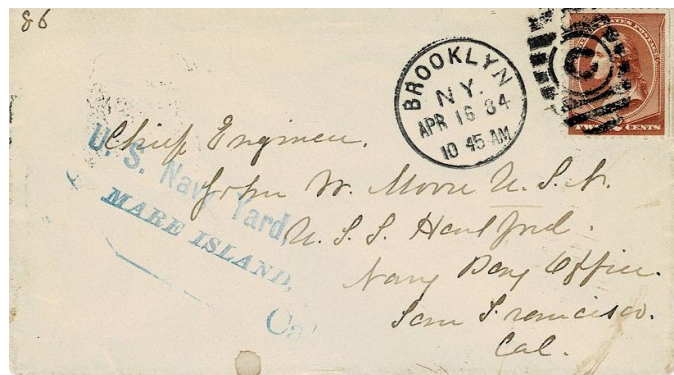 86
BROOKLYN
N.Y.
APR 16 84
10 45 AM
C
TWO CENTS
Chief Engineer.
John W. Moore U.S.N.
U.S.S. Hartford.
Navy Pay Office.
San Francisco.
Cal.
U. S. Navy Yard,
MARE ISLAND,
Cal